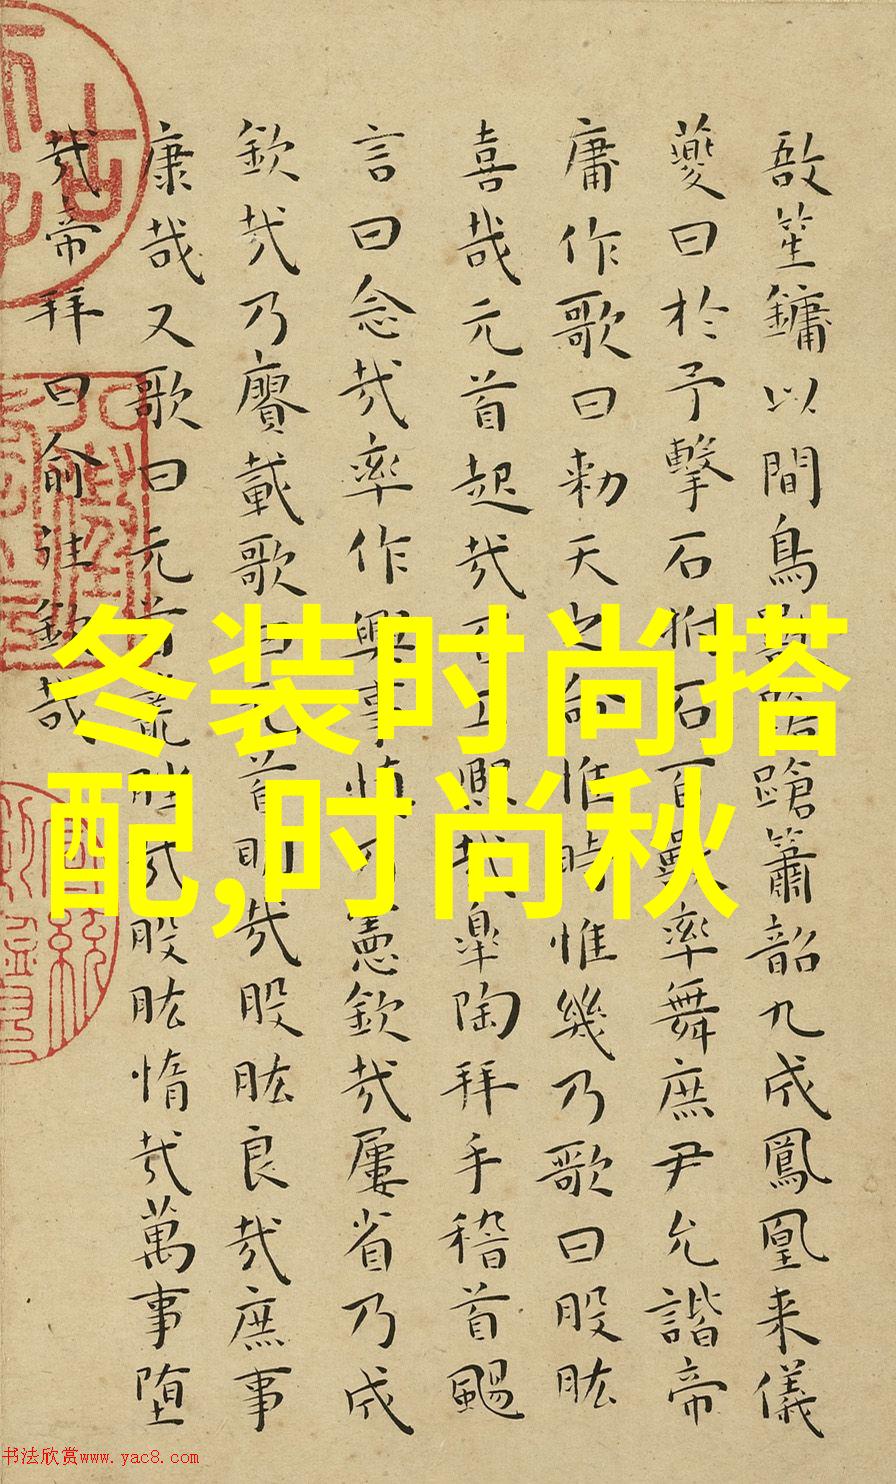 敔笙鏞以間鳥獸蹌蹌簫韶九成鳳凰来儀
夔曰於予擊石拊石百獸率舞庶尹允諧帝
庸作歌曰勑天之命惟時惟幾乃歌曰股肱
喜哉元首起哉百工熙哉皐陶拜手稽首颺
言曰念哉率作興事慎乃憲欽哉屢省乃成
欽哉乃賡載歌曰元首明哉股肱良哉庶事
康哉又歌曰元首叢脞哉股肱惰哉萬事堕
哉帝拜曰俞往欽哉
冬装时尚搭
配,时尚秋
书法欣赏www.yac8.com